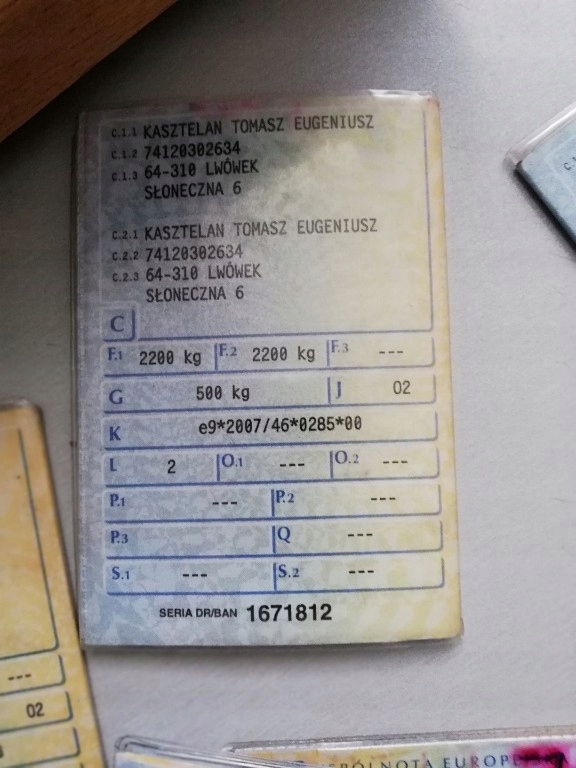 C.1.1 KASZTELAN TOMASZ EUGENIUSZ
C.1.2 74120302634
C.1.3 64-310 LWÓWEK
SŁONECZNA 6
C.2.1 KASZTELAN TOMASZ EUGENIUSZ
C.2.2 74120302634
C.2.3 64-310 LWÓWEK
SŁONECZNA 6
C
F.1 2200 kg F.2 2200 kg F.3 ---
G 500 kg J 02
K e9*2007/46*0285*00
L 2 O.1 --- O.2 ---
P.1 --- P.2 ---
P.3 Q ---
S.1 --- S.2 ---
SERIA DR/BAN 1671812
---
02